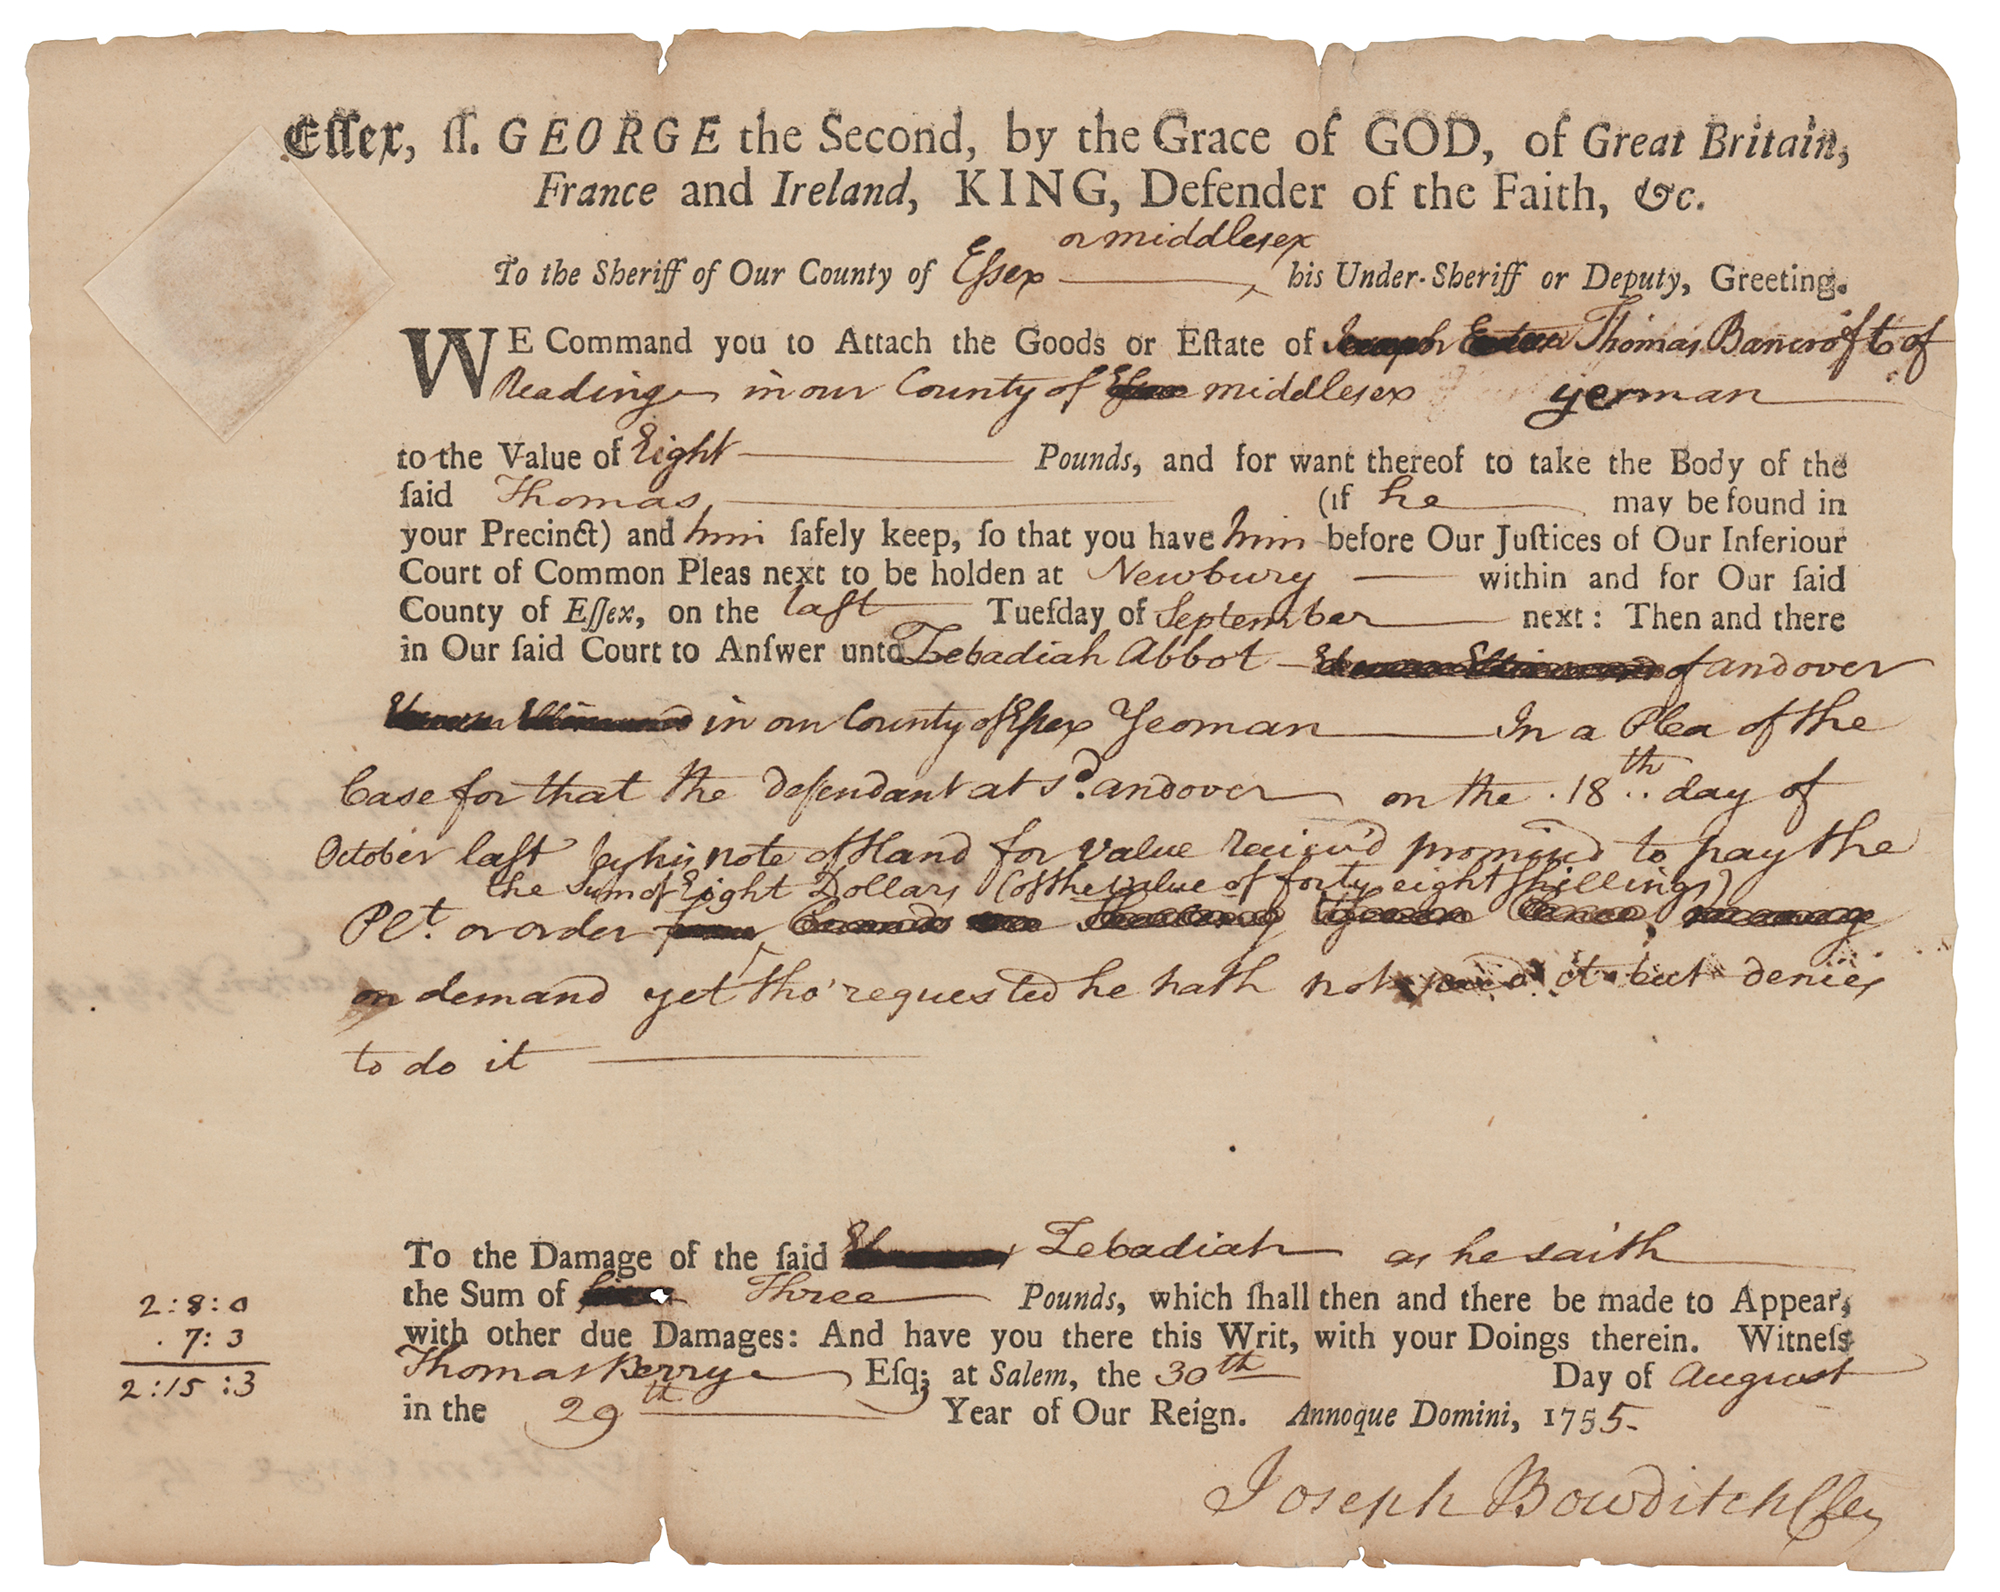 Eſſex, ſſ. GEORGE the Second, by the Grace of GOD, of Great Britain,
France and Ireland, KING, Defender of the Faith, &c.
or middlesex
To the Sheriff of Our County of Eſsex his Under-Sheriff or Deputy, Greeting.
WE Command you to Attach the Goods or Eſtate of Thomas Bancroft of
Reading in our County of middlesex yeoman
to the Value of Eight Pounds, and for want thereof to take the Body of the
ſaid Thomas (if he may be found in
your Precinct) and him ſafely keep, ſo that you have him before Our Juſtices of Our Inferiour
Court of Common Pleas next to be holden at Newbury within and for Our ſaid
County of Eſſex, on the laſt Tueſday of September next: Then and there
in Our ſaid Court to Anſwer unto Zebadiah Abbot of andover
in our County of Eſsex Yeoman In a Plea of the
Case for that the defendant at sd. andover on the 18th day of
October laſt by his note of Hand for value receiv'd promised to pay the
the sum of Eight Dollars (of the value of forty eight ſhillings)
Plt. or order
on demand yet tho' requested he hath not paid it but denies
to do it
To the Damage of the ſaid Zebadiah as he saith
the Sum of Three Pounds, which ſhall then and there be made to Appear,
with other due Damages: And have you there this Writ, with your Doings therein. Witneſs
Thomas Berry Eſq; at Salem, the 30th Day of August
in the 29th Year of Our Reign. Annoque Domini, 1755.
Joseph Bowditch Cler
2:8:0
. 7:3
2:15:3